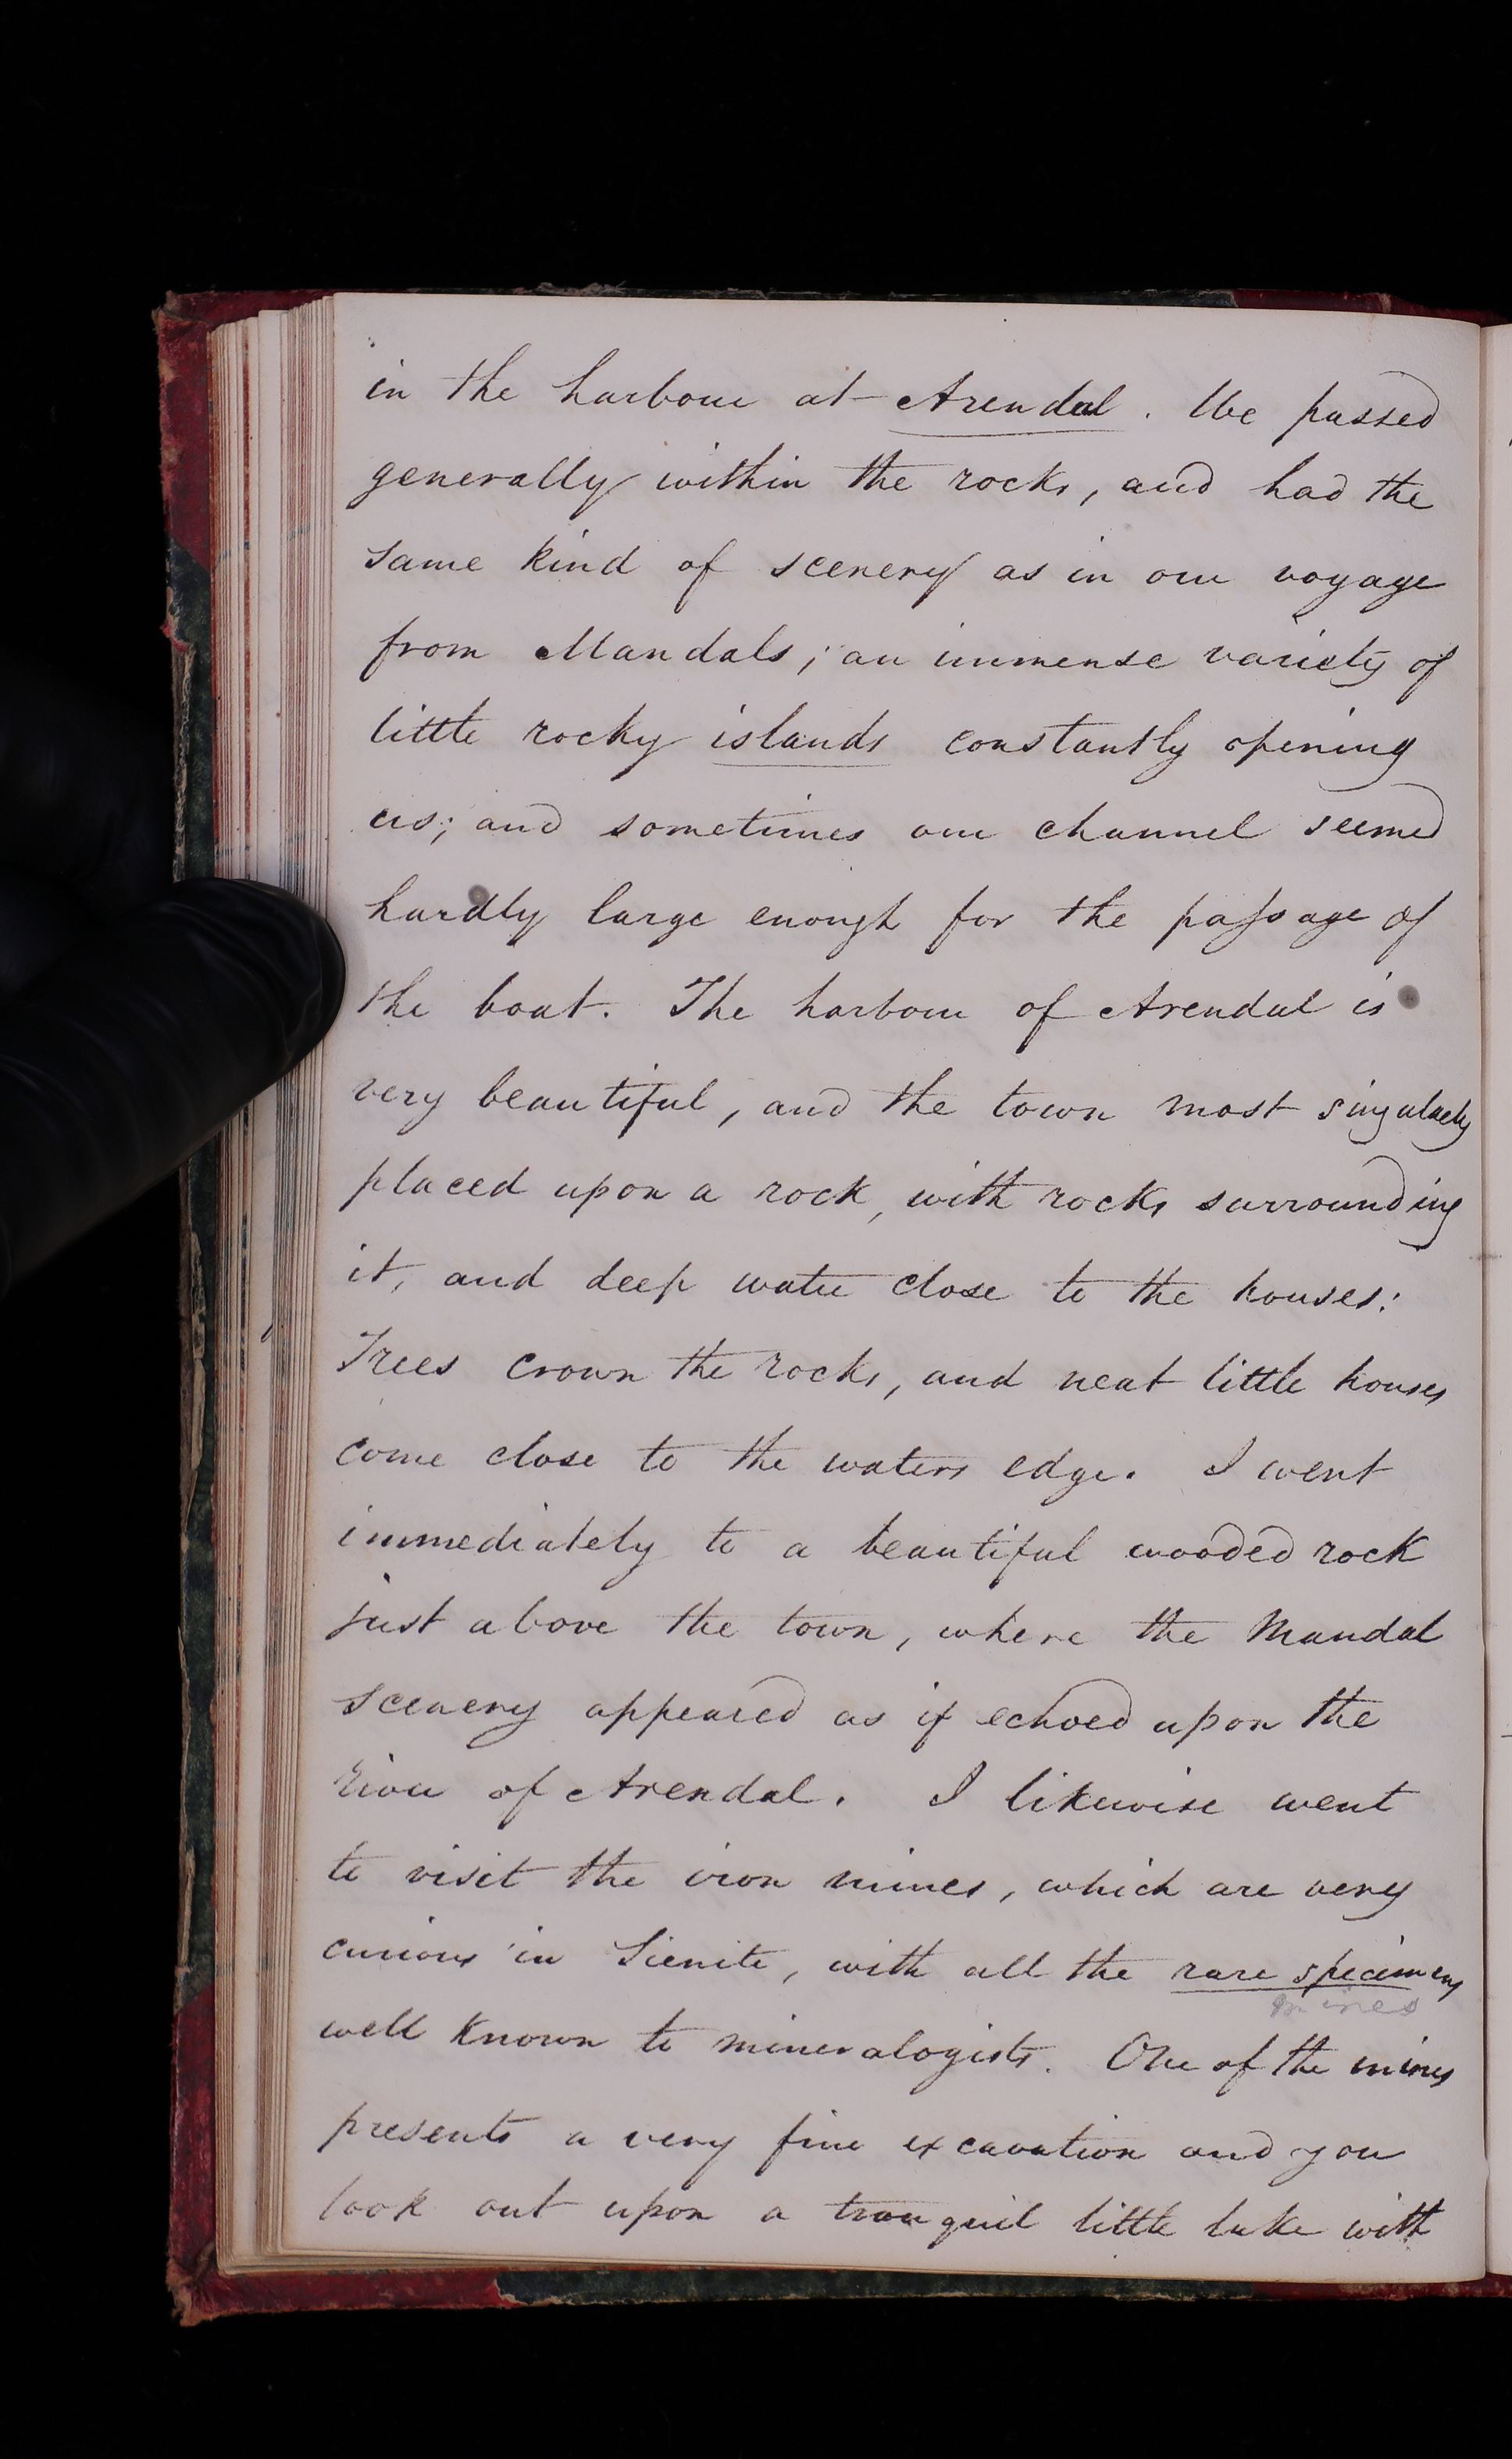 in the harbour at Arendal. We passed
generally within the rocks, and had the
same kind of scenery as in our voyage
from Mandals; an immense variety of
little rocky islands constantly opening
us; and sometimes our channel seemed
hardly large enough for the passage of
the boat. The harbour of Arendal is
very beautiful, and the town most singularly
placed upon a rock, with rocks surrounding
it, and deep water close to the houses:
Trees crown the rocks, and neat little houses
come close to the waters edge. I went
immediately to a beautiful wooded rock
just above the town, where the Mandal
scenery appeared as if echoed upon the
river of Arendal. I likewise went
to visit the iron mines, which are very
curious in Sienite, with all the rare specimens
mines
well known to mineralogists. One of the mines
presents a very fine excavation and you
look out upon a tranquil little lake with